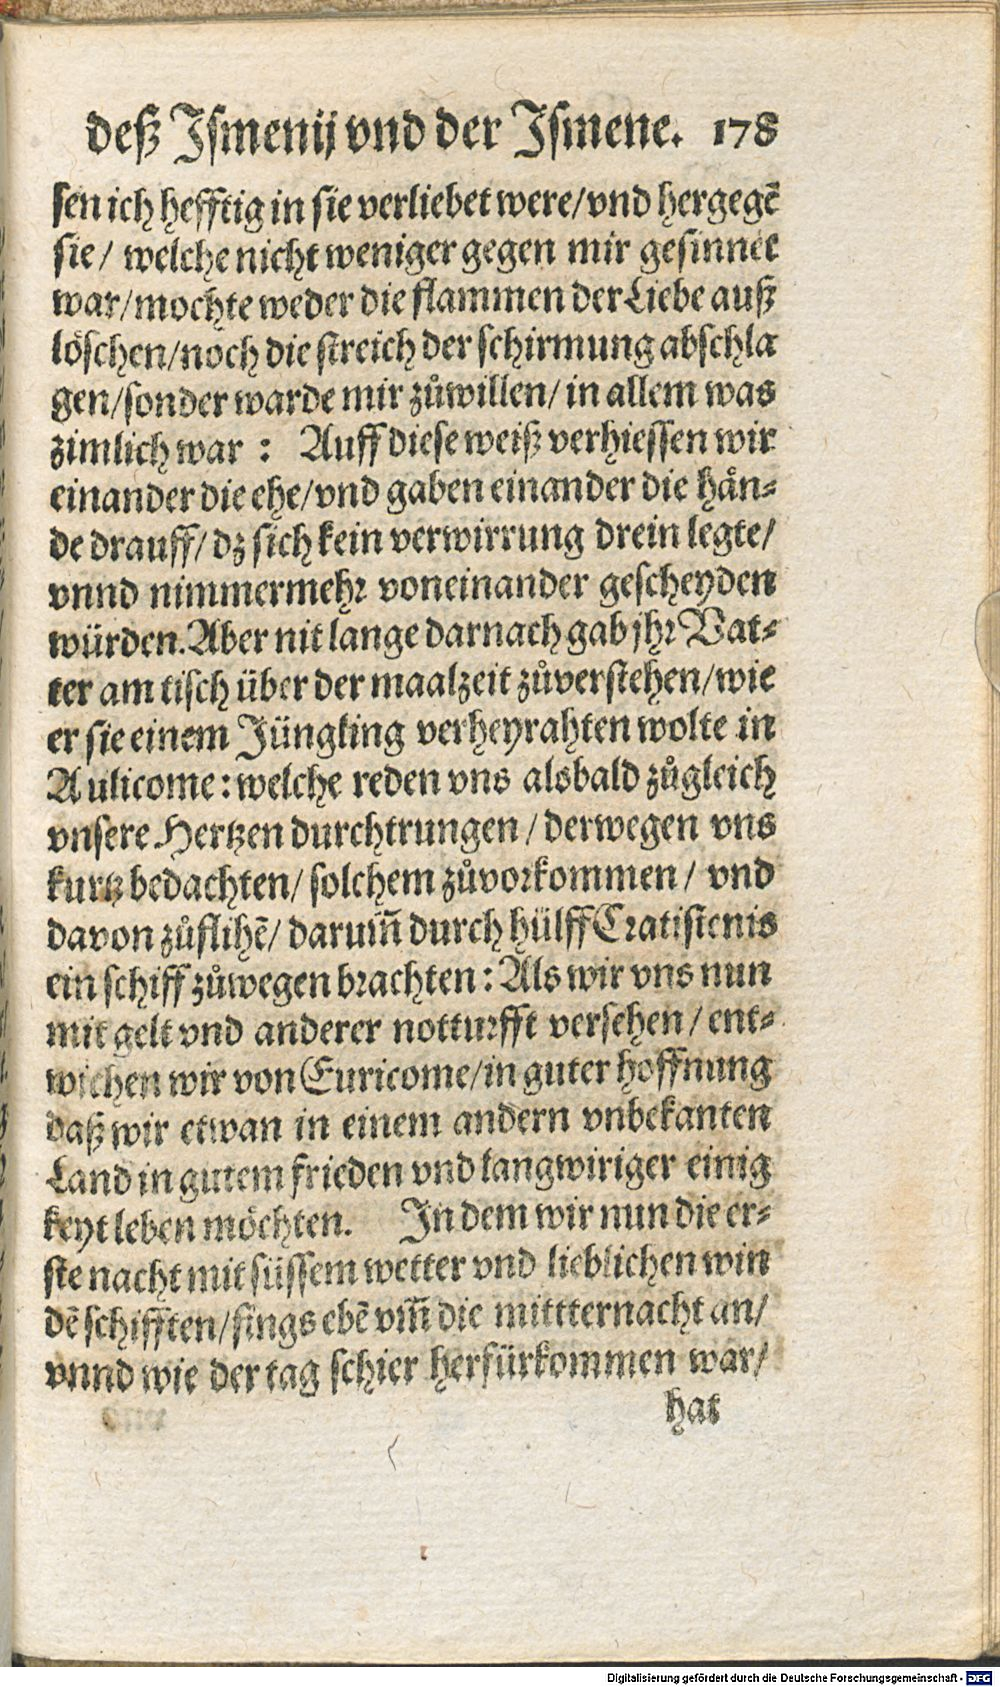 deß Ismenij vnd der Ismene. 178
sen ich hefftig in sie verliebet were/vnd hergegẽ
sie/ welche nicht weniger gegen mir gesinnet
war/mochte weder die flammen der Liebe auß
löschen/noch die streich der schirmung abschla
gen/sonder warde mir zůwillen/ in allem was
zimlich war : Auff diese weiß verhiessen wir
einander die ehe/vnd gaben einander die hån-
de drauff/ dz sich kein verwirrung drein legte/
vnnd nimmermehr voneinander gescheyden
würden. Aber nit lange darnach gab jhr Vat-
ter am tisch über der maalzeit zůverstehen/wie
er sie einem Jüngling verheyrahten wolte in
Aulicome: welche reden vns alsbald zůgleich
vnsere Hertzen durchtrungen / derwegen vns
kurtz bedachten/ solchem zůvorkommen/ vnd
davon zůflihẽ/ darum̃ durch hülff Cratistenis
ein schiff zůwegen brachten: Als wir vns nun
mit gelt vnd anderer notturfft versehen / ent-
wichen wir von Euricome/in guter hoffnung
daß wir etwan in einem andern vnbekanten
Land in gutem frieden vnd langwiriger einig
keyt leben möchten. In dem wir nun die er-
ste nacht mit süssem wetter vnd lieblichen win
dẽ schifften/fings ebẽ vm̃ die mittternacht an/
vnnd wie der tag schier herfürkommen war/
hat
Digitalisierung gefördert durch die Deutsche Forschungsgemeinschaft - DFG